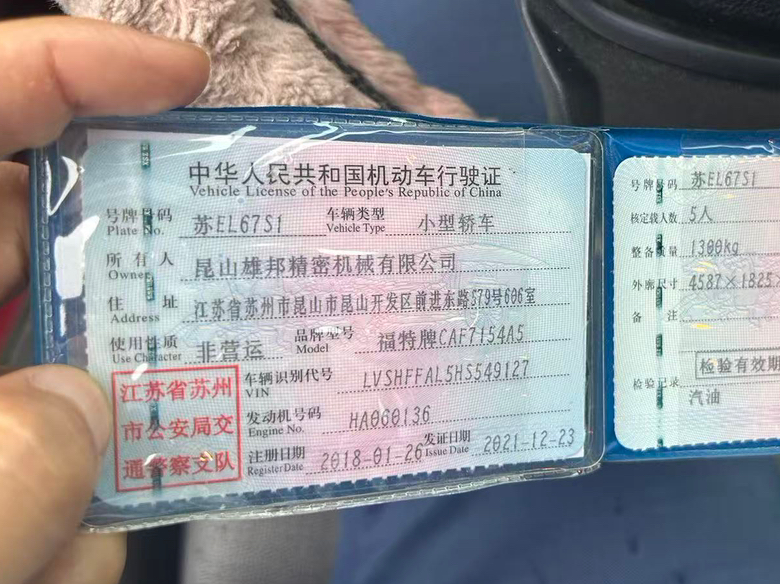 中华人民共和国机动车行驶证
Vehicle License of the People's Republic of China
号牌号码 苏EL67S1 车辆类型 小型轿车
Plate No. Vehicle Type
所有人 昆山雄邦精密机械有限公司
Owner
住址 江苏省苏州市昆山市昆山开发区前进东路579号606室
Address
使用性质 非营运 品牌型号 福特牌CAF7154A5
Use Character Model
江苏省苏州
市公安局交
通警察支队
车辆识别代号 LVSHFFAL5HS549127
VIN
发动机号码 HA060136
Engine No.
注册日期 2018-01-26 发证日期 2021-12-23
Register Date Issue Date
号牌号码 苏EL67S1
核定载人数 5人
整备质量 1300kg
外廓尺寸 4587×1825
备注
检验有效期
检验记录
汽油